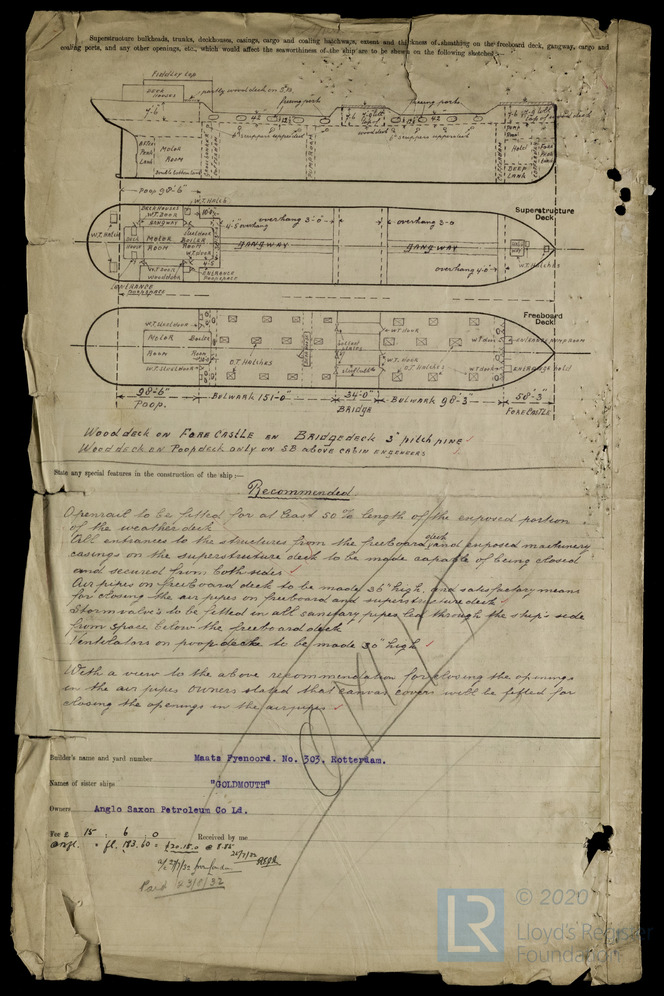 Superstructure bulkheads, trunks, deckhouses, casings, cargo and coaling hatchways, extent and thickness of sheathing on the freeboard deck, gangway, cargo and
coaling ports, and any other openings, etc., which would affect the seaworthiness of the ship are to be shown on the following sketches:—
Fiddley top
Deck Houses
partly wood deck on S.B.
freeing ports
freeing ports
7-6
42
7-6
42
wood deck
After Peak Tank
Motor Room
Double bottom tank
Cofferdam
Pump Room
Hold
Deep Tank
Fore Peak Tank
Poop 98'-6"
W.T. Hatch
Deck Houses
W.T. Door
Gangway
4'-5" overhang
overhang 3'-0"
overhang 3-0
Superstructure
Deck
W.T. Hatch
Deck House
Motor Room
Boiler Room
Gangway
Gangway
overhang 4'-0"
W.T. Hatches
W.T. Door
wood deck
Entrance Pumproom
Entrance
Freeboard
Deck
W.T. Steeldoor
Motor
Room
Boiler
Room
W.T. Steeldoor
O.T. Hatches
W.T. door
W.T. Hook
O.T. Hatches
W.T. door
W.T. door
Entrance Pump Room
Entrance Hold
98'-6"
Poop.
Bulwark 151'-0"
34'-0"
Bridge
Bulwark 98'-3"
58'-3"
Forecastle
Wood deck on Forecastle en Bridgedeck 3" pitch pine
Wood deck on Poopdeck only on SB above cabin engeneers
State any special features in the construction of the ship:—
Recommended
Openrail to be fitted for at least 50% length of the exposed portion
of the weather deck
All entrances to the structures from the freeboard deck and exposed machinery
casings on the superstructure deck to be made capable of being closed
and secured from both sides
Air pipes on freeboard deck to be made 36" high, and satisfactory means
for closing the air pipes on freeboard and superstructure deck
Stormvalves to be fitted in all sanitary pipes led through the ship's side
from space below the freeboard deck
Ventilators on poop decke to be made 30" high
With a view to the above recommendation for closing the openings
in the air pipes owners stated that canvas covers will be fitted for
closing the openings in the airpipes
OMIT
Builder's name and yard number Maats Fyenoord. No. 303. Rotterdam.
Names of sister ships "GOLDMOUTH"
Owners Anglo Saxon Petroleum Co Ld.
Fee £ 15 : 6 : 0 Received by me
= fl. 183.60 = £20.18.0 @ 8.85
Paid 23/8/32
LR
© 2020
Lloyd's Register
Foundation